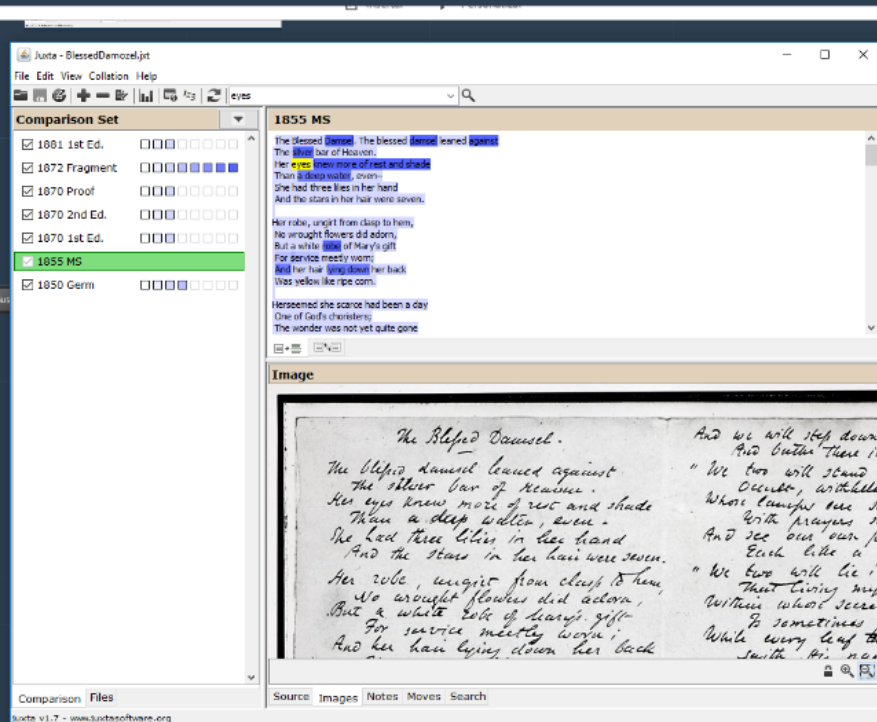 Juxta - BlessedDamozel.jxt
File Edit View Collation Help
eyes
Comparison Set
1881 1st Ed.
1872 Fragment
1870 Proof
1870 2nd Ed.
1870 1st Ed.
1855 MS
1850 Germ
1855 MS
The Blessed Damsel. The blessed damsel leaned against
The silver bar of Heaven.
Her eyes knew more of rest and shade
Than a deep water, even--
She had three lilies in her hand
And the stars in her hair were seven.
Her robe, ungirt from clasp to hem,
No wrought flowers did adorn,
But a white robe of Mary's gift
For service meetly worn;
And her hair lying down her back
Was yellow like ripe corn.
Herseemed she scarce had been a day
One of God's choristers;
The wonder was not yet quite gone
Image
The Blessed Damsel.
The blessed damsel leaned against
The silver bar of Heaven.
Her eyes knew more of rest and shade
Than a deep water, even -
She had three lilies in her hand
And the stars in her hair were seven.
Her robe, ungirt from clasp to hem,
No wrought flowers did adorn,
But a white robe of Mary's gift
For service meetly worn;
And her hair lying down her back
And we will step down
And bathe there
" We two will stand
Occult, withheld
Whose lamps are
With prayers
And see our
Each like a
" We two will lie
That living
Within whose
Is sometimes
While every leaf
Saith His
Comparison Files
Source Images Notes Moves Search
Juxta v1.7 - www.juxtasoftware.org